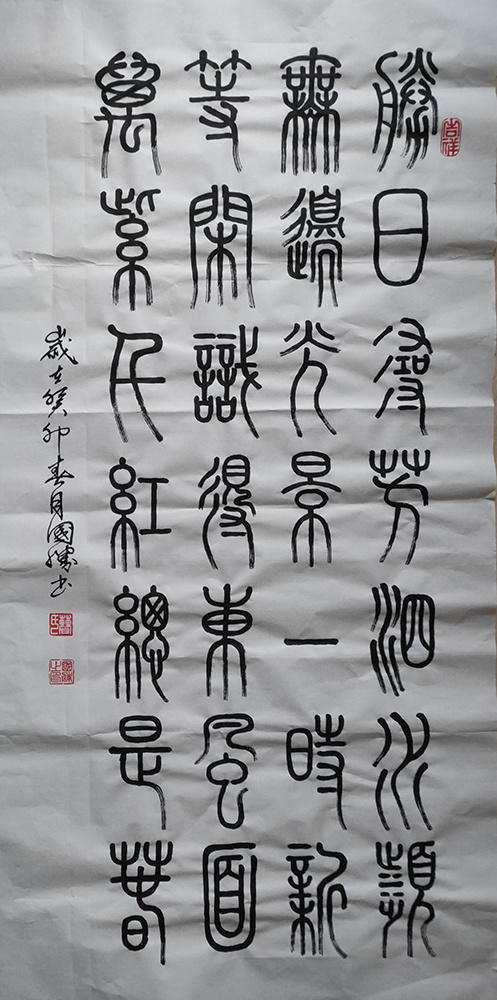 吉祥
勝日尋芳泗水瀕
無邊光景一時新
等閑識得東風面
萬紫千紅總是春
歲在癸卯春月國勝書